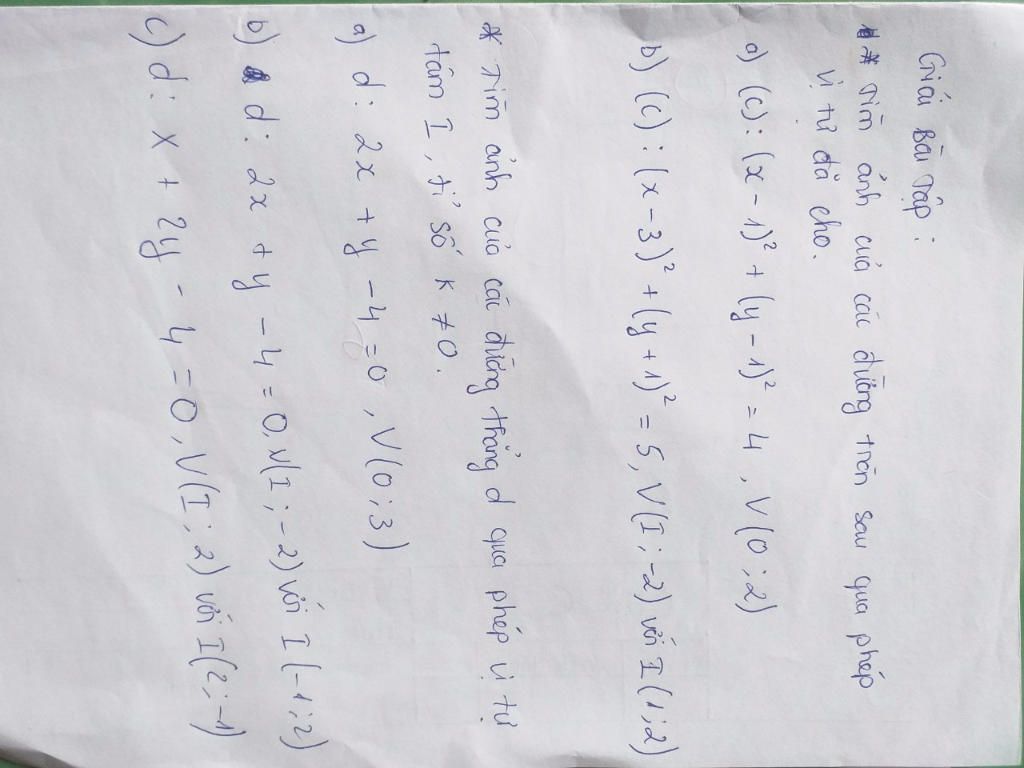 Giải Bài Tập:
* Tìm ảnh của các đường tròn sau qua phép
vị tự đã cho.
a) (C): (x - 1)² + (y - 1)² = 4, V(O; 2)
b) (C): (x - 3)² + (y + 1)² = 5, V(I; -2) với I(1; 2)
* Tìm ảnh của các đường thẳng d qua phép vị tự
tâm I, tỉ số k ≠ 0.
a) d: 2x + y - 4 = 0, V(O; 3)
b) d: 2x + y - 4 = 0, V(I; -2) với I(-1; 2)
c) d: x + 2y - 4 = 0, V(I; 2) với I(2; -1)